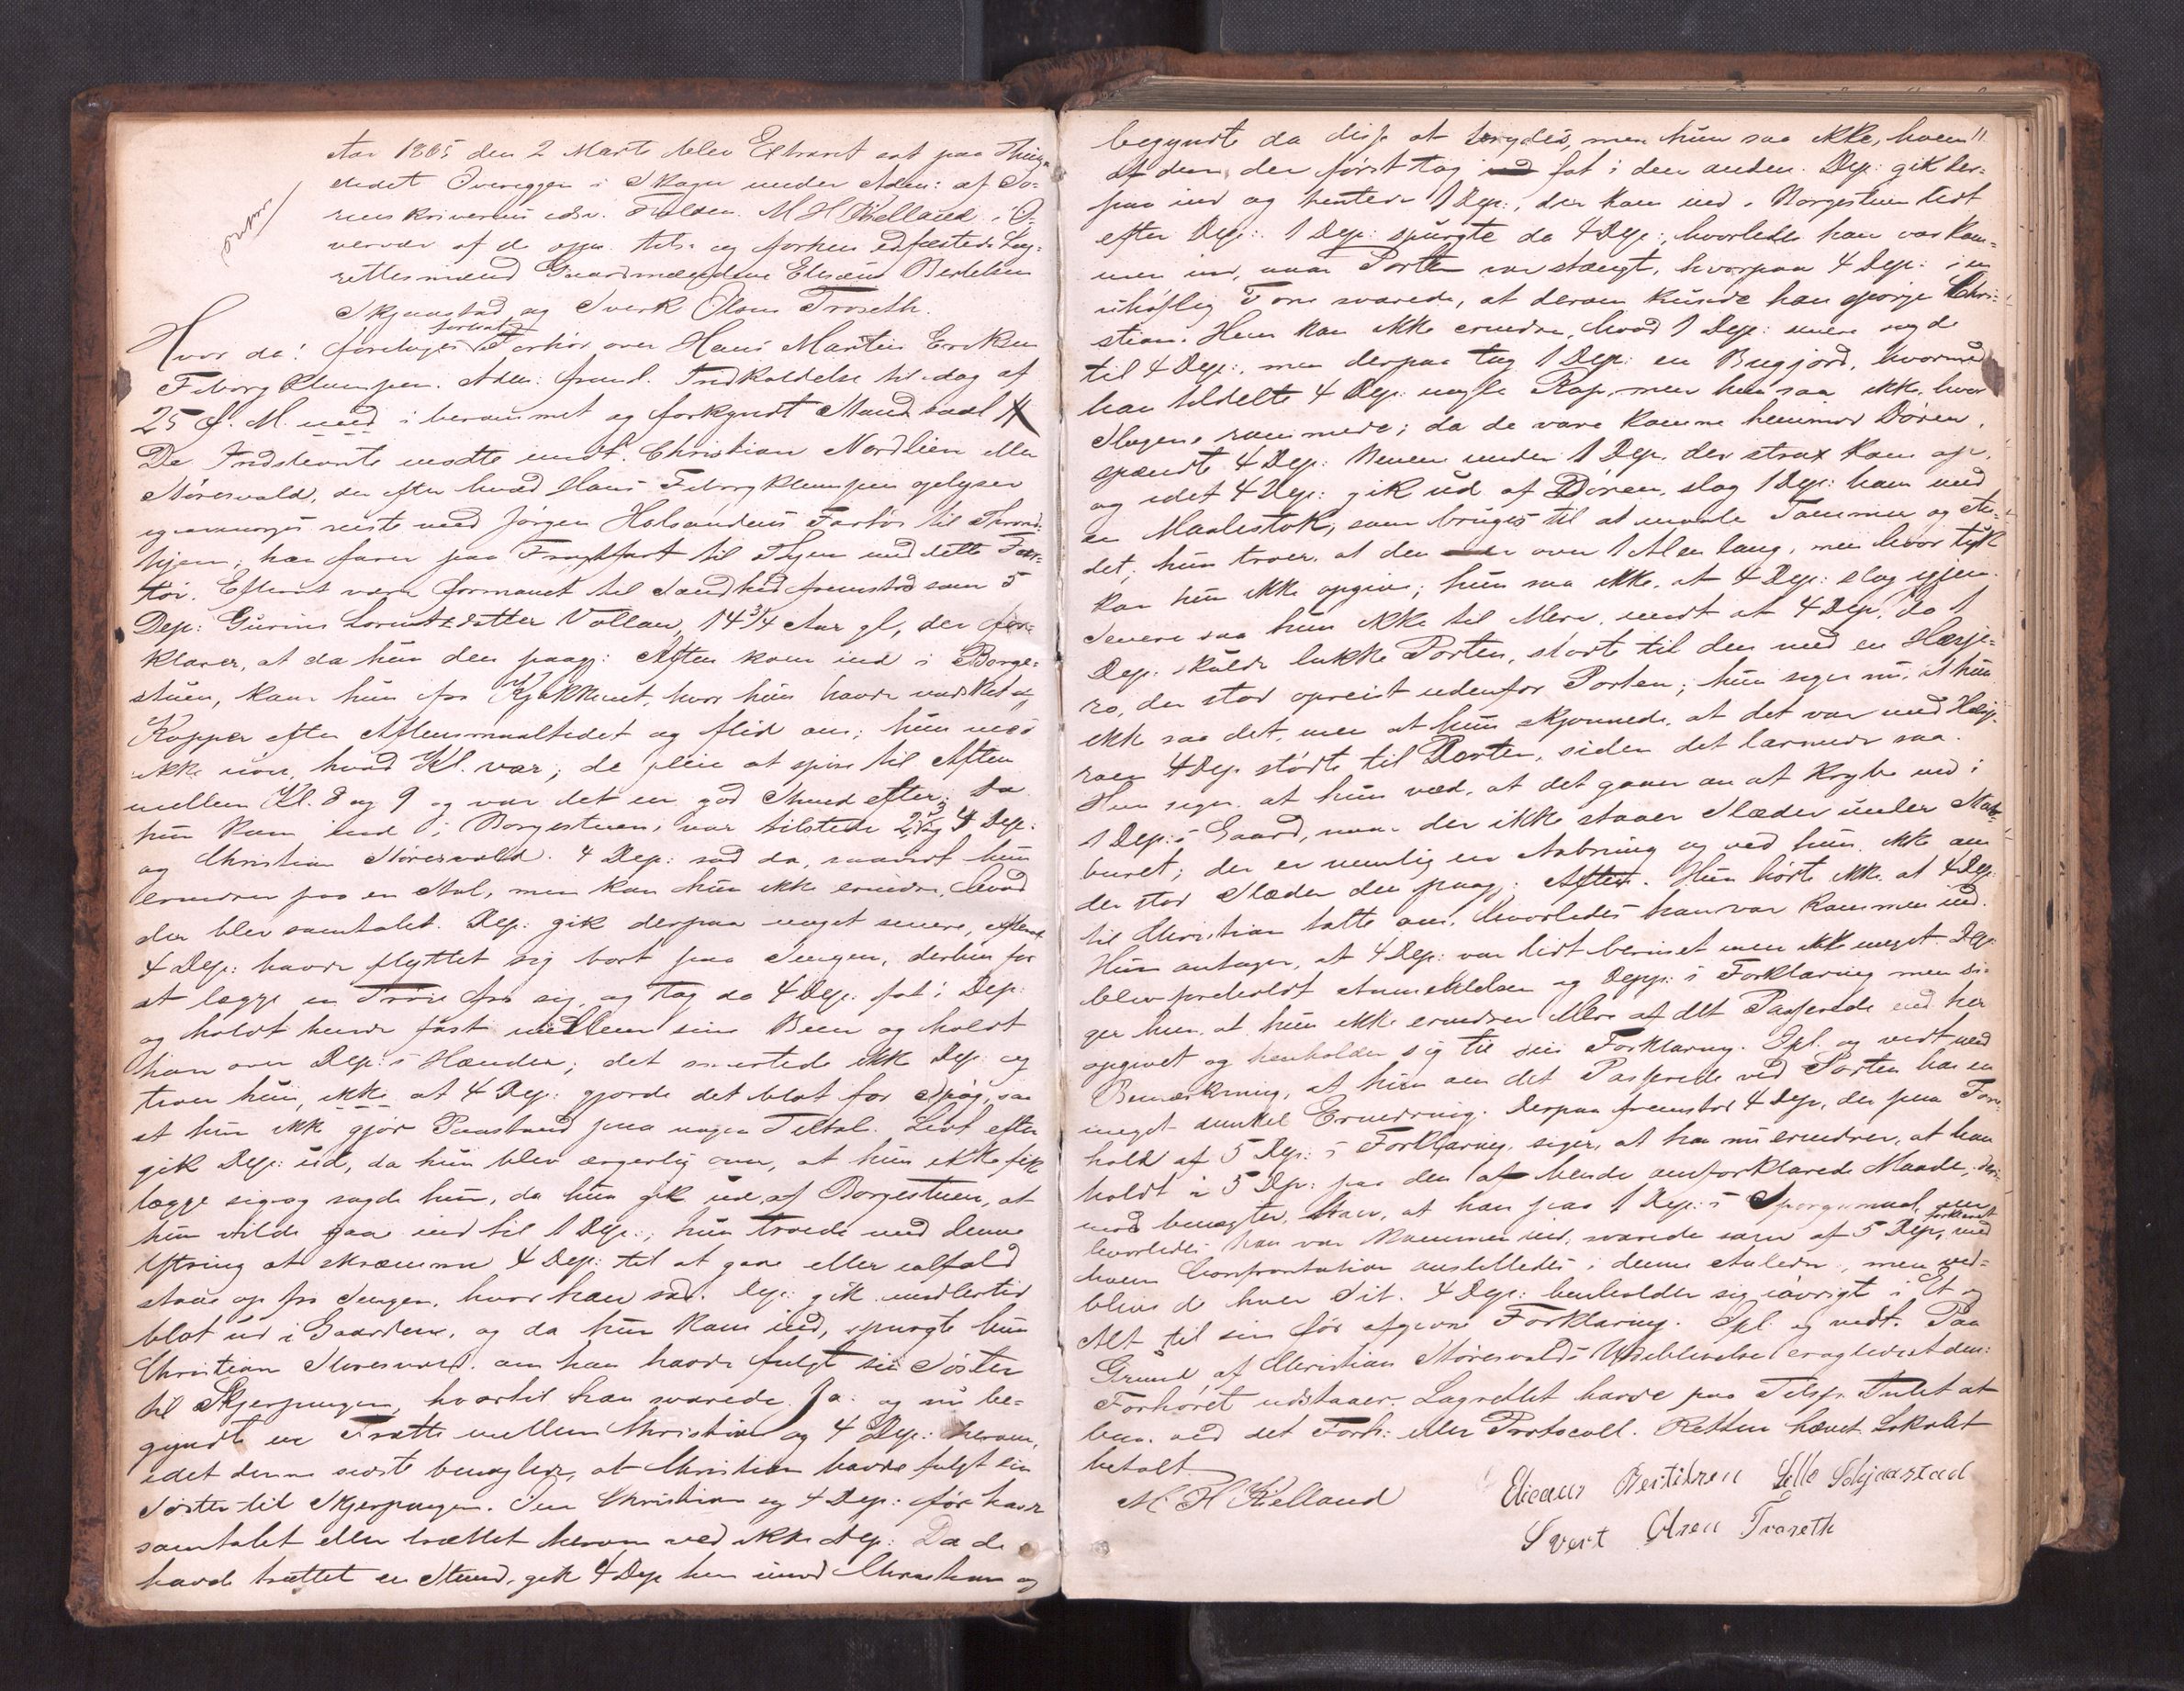 Aar 1865 den 2 Marts blev Extraret sat paa Thing-
stedet Overeggen i Skogn under Adm: af So-
renskriverens edsv. Fuldm. M H Kielland i O-
vervær af de opn. tils. og forhen edfæstede Lag-
rettesmænd Gaardmændene Eliæus Bertelsen
Skjerstad og Sverk Olsen Troseth.
Hvor da: foretoges fortsat Forhør over Hans Martin Eriksen
Fiborgklumpen. Adm: freml. Indkaldelse til idag af
25 f. M. med i berammet og forkyndt Stand saal
De Indstevnte mødte undt. Christian Nordlien eller
Störesvald, der efter hvad Hans Fiborgklumpen oplyser
igaarmorges reiste med Jörgen Holsandens Fartöi til Thrond-
hjem; han farer paa Fragtfart til Byen med dette Far-
töi. Efterat være formanet til Sandhed fremstod som 5
Dep: Gurine Lorentzdatter Vollan, 14 3/4 Aar gl, der for-
klarer, at da hun den paagj: Aften kom ind i Borge-
stuen, kom hun fra Kjøkkenet, hvor hun havde vadsket op
Kopper efter Aftensmaaltidet og flid om; hun ved
ikke nöie, hvad Kl. var; de pleie at spise til Aften
mellem Kl. 8 og 9 og var det en god Stund efter; Da
hun kom ind i Borgestuen, var tilstede 2, 3 og 4 Dep:
og Christian Störesvald. 4 Dep: sad da, saavidt hun
erindrer paa en Stol, men kan hun ikke erindre, hvad
der blev samtalet. Dep: gik derpaa noget senere, efterat
4 Dep: havde flyttet sig bort paa Sengen, derhen for
at lægge en Tröie fra sig, og tog da 4 Dep: fat i Dep:
og holdt hende fast mellem sine Been og holdt
han om Dep:s Hænder; det smertede ikke Dep: og
troer hun ikke at 4 Dep: gjorde det blot for Spög, saa
at hun ikke gjör Paastand paa nogen Tiltal. Lidt efter
gik Dep: ud, da hun blev ærgerlig over, at hun ikke fik
lægge sig og sagde hun, da hun gik ud af Borgestuen, at
hun vilde gaa ind til 1 Dep:, hun troede med denne
Yttring at skræmme 4 Dep: til at gaae eller ialfald
staae op fra Sengen, hvor han sad. Dep: gik imidlertid
blot ud i Gaarden, og da hun kom ind, spurgte hun
Christian Störesvald, om han havde fulgt sin Söster
til Skjerpungen, hvortil han svarede Ja. og nu be-
gyndte en Trætte mellem Christian og 4 Dep: herom,
idet denne sidste benægtede, at Christian havde fulgt sin
Söster til Skjerpungen. Om Christian og 4 Dep: för havde
samtalet eller trættet herom ved ikke Dep: Da de
havde trættet en Stund, gik 4 Dep hen imod Christian og
begyndte da disse at brydes, men hun saa ikke, hvem
af dem, der först tog fat i den anden. Dep: gik der-
paa ind og hentede 1 Dep:, der kom ind i Borgestuen lidt
efter Dep:. 1 Dep: spurgte da 4 Dep:, hvorledes han var kom-
men ind, naar Porten var stængt, hvorpaa 4 Dep: i en
uhöflig Tone svarede, at derom kunde han spörge Chri-
stian. Hun kan ikke erindre, hvad 1 Dep: mere sagde
til 4 Dep:, men derpaa tog 1 Dep: en Bugjord, hvormed
han tildelte 4 Dep: nogle Rap, men hun saa ikke, hvor
Slagene rammede; da de vare komne henimod Dören,
spændte 4 Dep: Benene under 1 Dep. der strax kom op,
og idet 4 Dep: gik ud af Dören, slog 1 Dep: ham med
en Maalestok, som bruges til at maale Tømmer og
det; hun troer, at den er over 1 Alen lang, men hvor tyk
kan hun ikke opgive; hun saa ikke, at 4 Dep: slog igjen.
Senere saa hun ikke til Mere, undt at 4 Dep, da 1
Dep. skulde lukke Porten, stödte til den med en Hæsje-
ro, der stod opreist udenfor Porten; hun siger nu, at hun
ikke saa det, men at hun skjönnede, at det var med Hæsje-
roen 4 Dep stödte til Porten, siden det larmede saa.
Hun siger, at hun ved, at det gaaer an at krybe ind i
1 Dep:s Gaard, naar der ikke staaer Slæder under Stab-
buret; der er nemlig en Aabning og ved hun ikke om
der stod Slæder den paagj: Aften. Hun hörte ikke at 4 Dep:
til Christian talte om, hvorledes han var kommen ind.
Hun antager, at 4 Dep: var lidt beruset men ikke meget. Dep:
blev foreholdt Anmeldelsen og Depp:s Forklaring men si-
ger hun, at hun ikke erindrer Mere af det Passerede end her
opgivet og henholder sig til sin Forklaring. Opl. og vedt. med
Bemærkning, at hun om det Passerede ved Porten har en
meget dunkel Erindring. Derpaa fremstod 4 Dep, der paa Fore-
hold af 5 Dep:s Forklaring siger, at han nu erindrer, at han
holdt i 5 Dep: paa den af hende omforklarede Maade, der-
imod benægter han, at han paa 1 Dep:s Spörgsmaal om
hvorledes han var kommen ind, svarede som af 5 Dep, forklaret med
hvem Confrontation anstilledes i denne Anledn., men ved-
blev de hver Sit. 4 Dep: henholder sig iövrigt i Et og
Alt til sin för afgivne Forklaring. Opl. og vedt. Paa
Grund af Christian Störesvalds Udeblivelse
Forhöret udstaaer. Lagrettet havde paa Tilsp. Intet at
bem. ved det Forh: eller Protocoll. Retten hævet. Lokalet
betalt.
M. H Kielland
Elieæus Bertilsen Lille Schjerstad
Svert Olsen Troseth